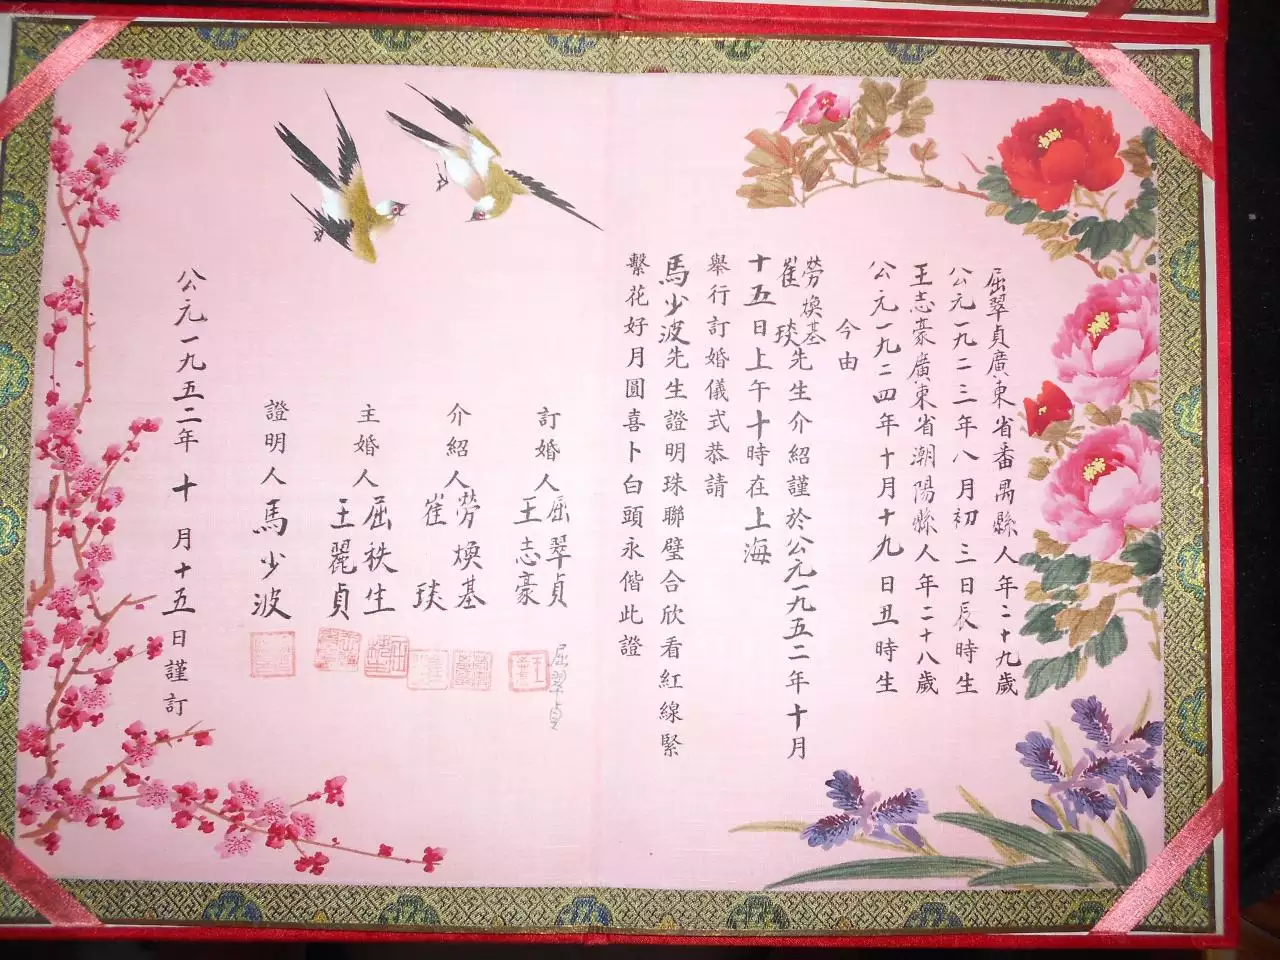 屈翠貞廣東省番禺縣人年二十九歲
公元一九二三年八月初三日長時生
王志豪廣東省潮陽縣人年二十八歲
公元一九二四年十月十九日丑時生
今由
勞煥基
崔琰先生介紹謹於公元一九五二年十月
十五日上午十時在上海
舉行訂婚儀式恭請
馬少波先生證明珠聯璧合欣看紅線緊
繫花好月圓喜卜白頭永偕此證
訂婚人屈翠貞
王志豪
屈翠貞
介紹人勞煥基
崔琰
主婚人屈秩生
王麗貞
證明人馬少波
公元一九五二年十月十五日謹訂